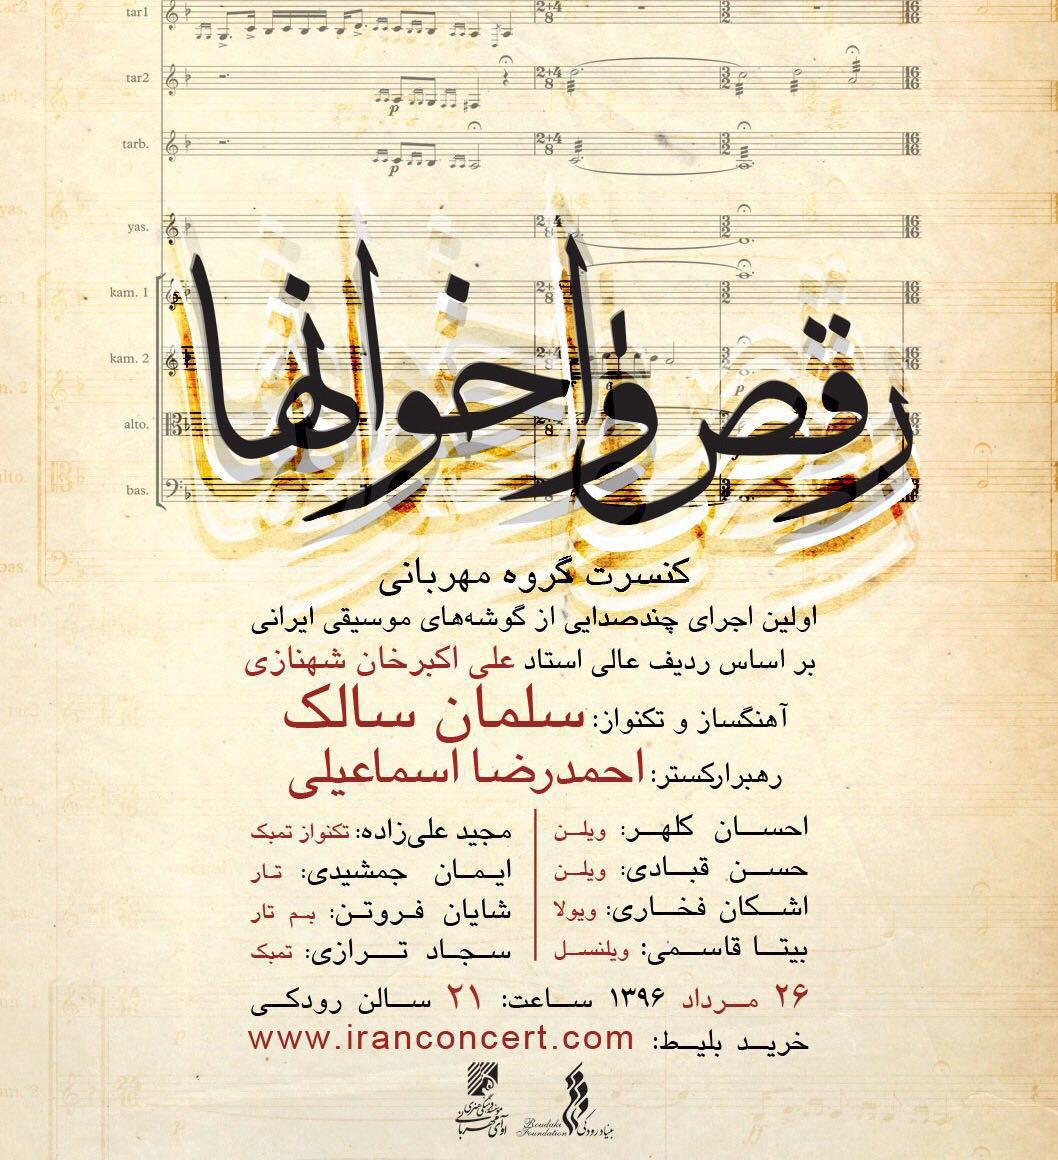 tar1
tar2
tarb.
yas.
kam. 1
kam. 2
alto.
bas.
رقص واخوانها
کنسرت گروه مهربانی
اولین اجرای چندصدایی از گوشه‌های موسیقی ایرانی
بر اساس ردیف عالی استاد علی اکبرخان شهنازی
آهنگساز و تکنواز: سلمان سالک
رهبرارکستر: احمدرضا اسماعیلی
احسان کلهر: ویلن
حسن قبادی: ویلن
اشکان فخاری: ویولا
بیتا قاسمی: ویلنسل
مجید علی‌زاده: تکنواز تمبک
ایمان جمشیدی: تار
شایان فروتن: بم تار
سجاد ترازی: تمبک
۲۶ مرداد ۱۳۹۶ ساعت: ۲۱ سالن رودکی
خرید بلیط: www.iranconcert.com
بنیاد رودکی
Roudaki
Foundation
موسسه فرهنگی هنری
آوای مهربانی